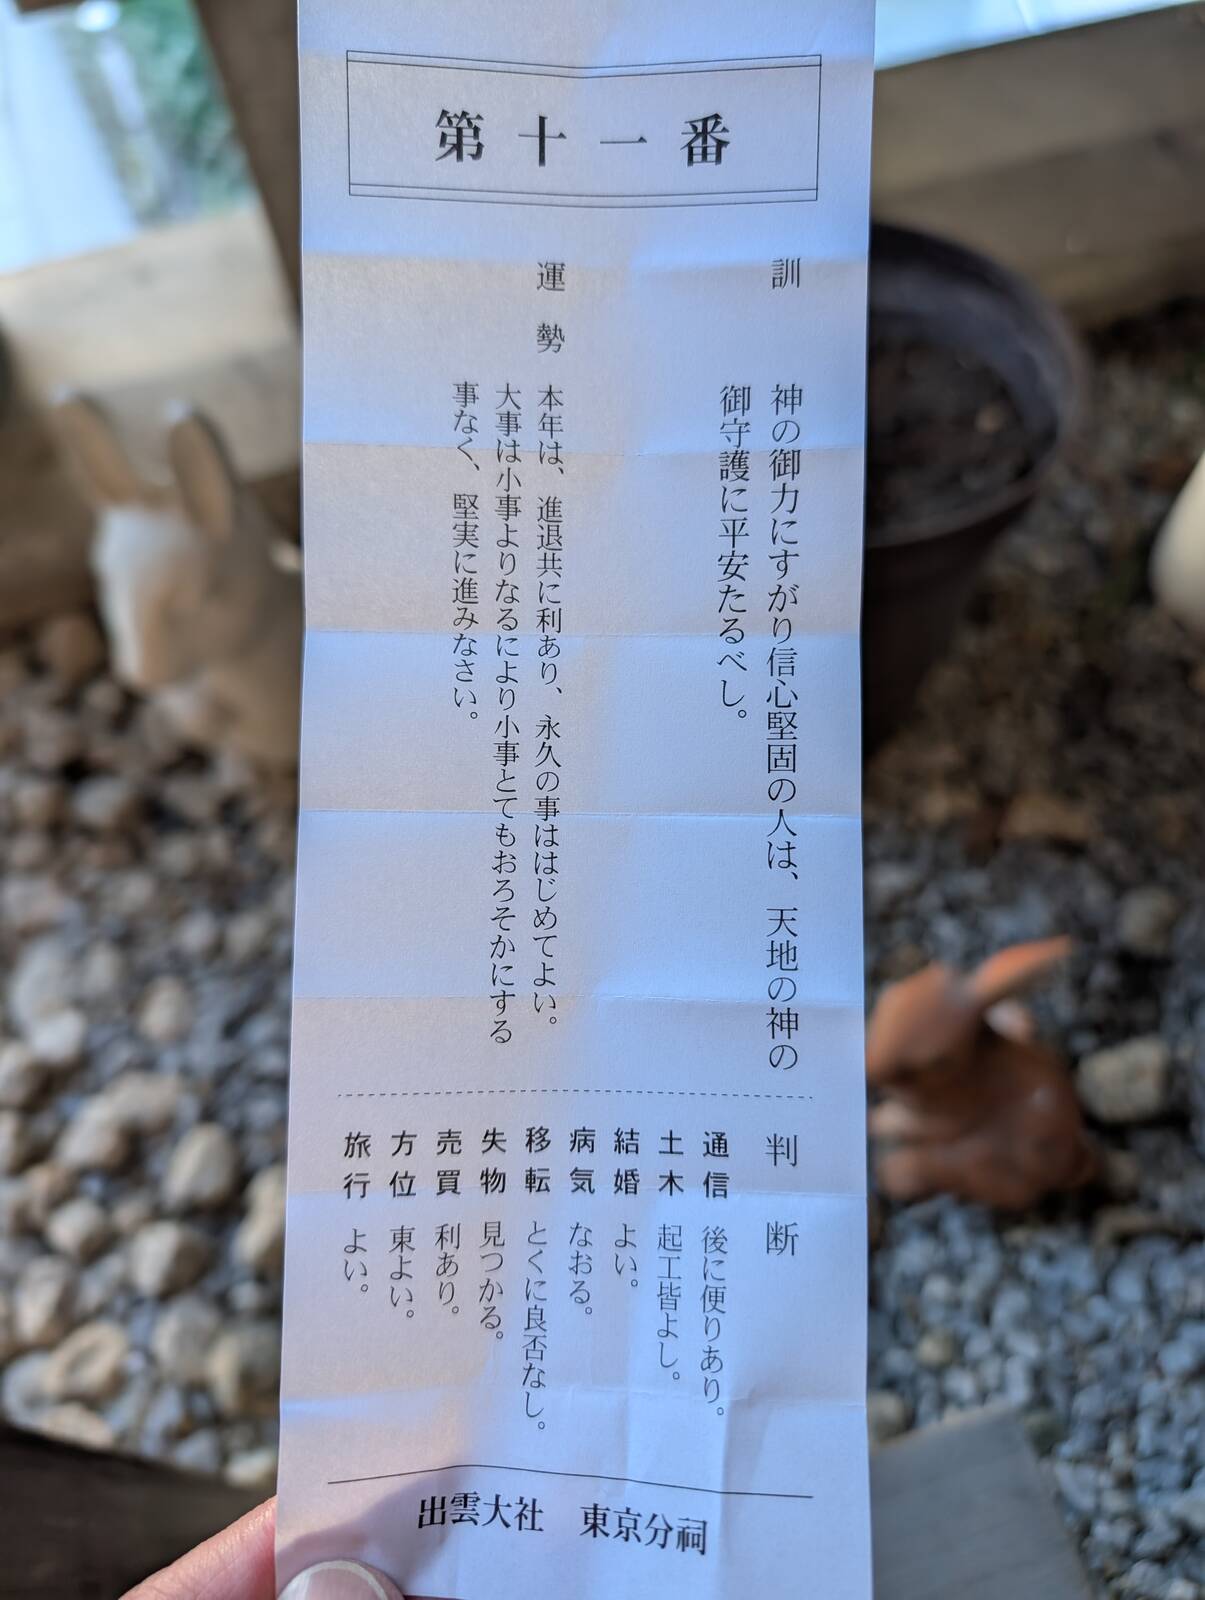 第十一番
訓
神の御力にすがり信心堅固の人は、天地の神の
御守護に平安たるべし。
運勢
本年は、進退共に利あり、永久の事ははじめてよい。
大事は小事よりなるにより小事とてもおろそかにする
事なく、堅実に進みなさい。
判断
通信 後に便りあり。
土木 起工皆よし。
結婚 よい。
病気 なおる。
移転 とくに良否なし。
失物 見つかる。
売買 利あり。
方位 東よい。
旅行 よい。
出雲大社 東京分祠